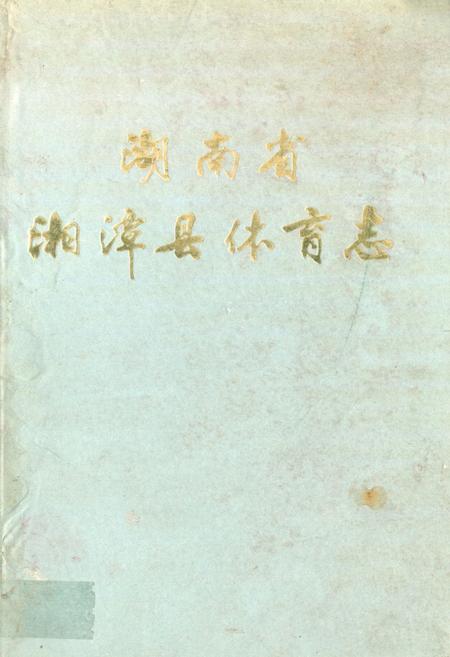 湖南省
湘潭县体育志